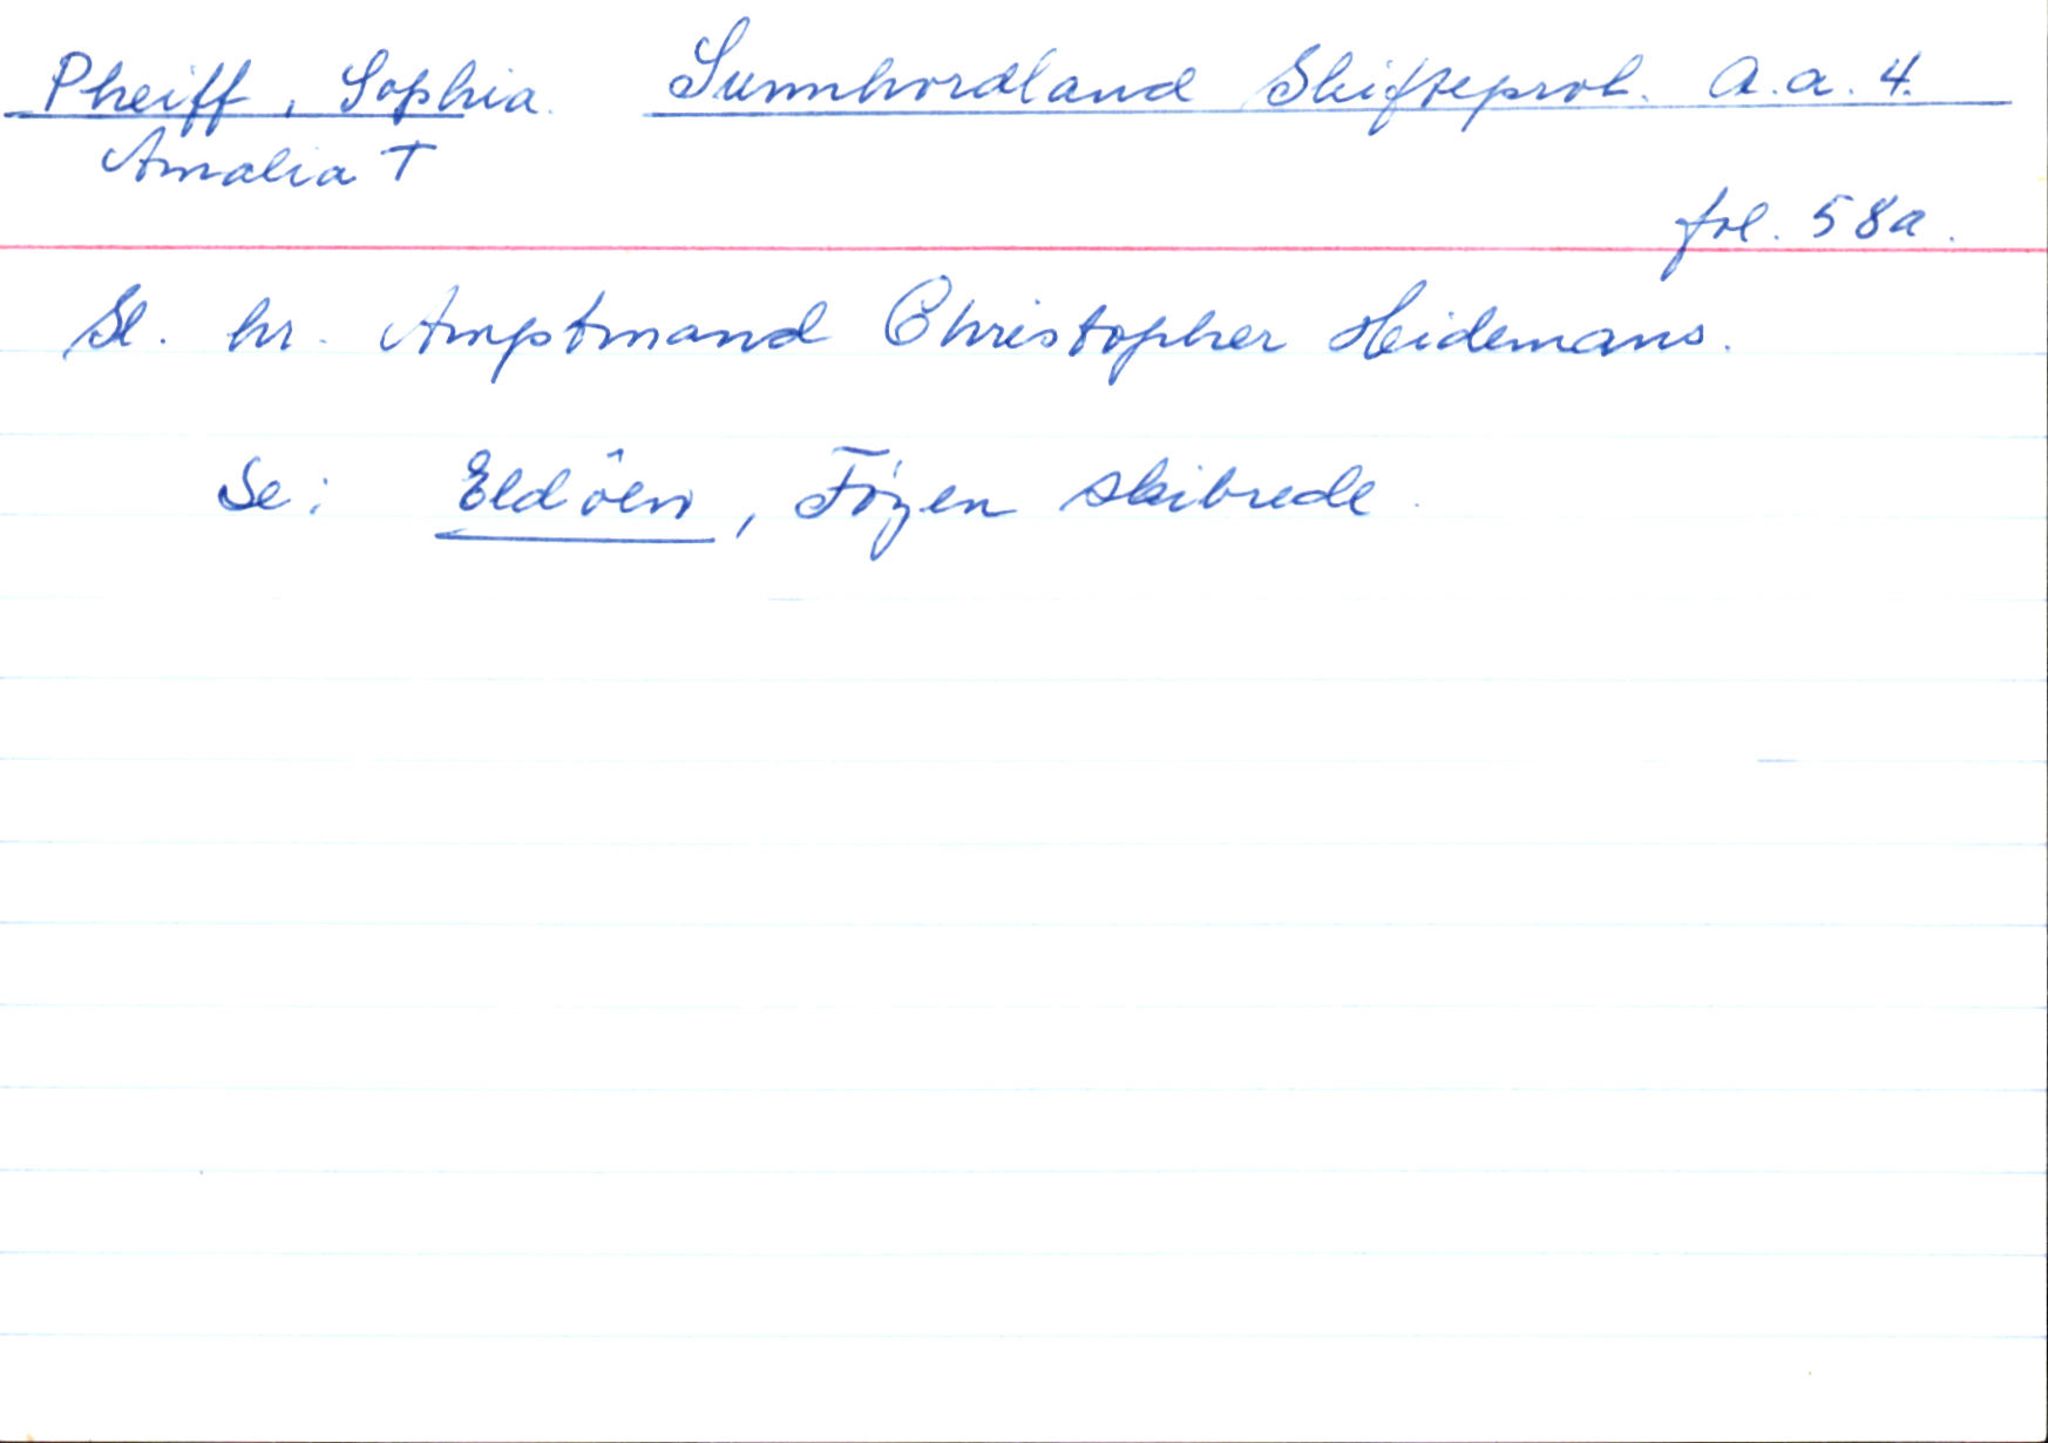 Pheiff, Sophia. Sunnhordland Skifteprot. A.a. 4.
Amalia T
fol. 58a.
Sl. hr. Amptmand Christopher Heidemans.
Se: Eldöen, Føyen skibrede.